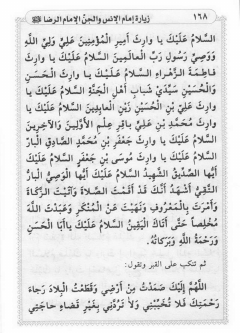 ١٦٨ زيارة إمام الإنس والجن الإمام الرضا
السَّلامُ عَلَيْكَ يا وارِثَ أَمِيرِ الْمُؤْمِنِينَ عَلِيٍّ وَلِيِّ اللَّهِ
وَوَصِيِّ رَسُولِ رَبِّ الْعالَمِينَ السَّلامُ عَلَيْكَ يا وارِثَ
فاطِمَةَ الزَّهْراءِ السَّلامُ عَلَيْكَ يا وارِثَ الْحَسَنِ
وَالْحُسَيْنِ سَيِّدَيْ شَبابِ أَهْلِ الْجَنَّةِ السَّلامُ عَلَيْكَ يا
وارِثَ عَلِيِّ بْنِ الْحُسَيْنِ زَيْنِ الْعابِدِينَ السَّلامُ عَلَيْكَ يا
وارِثَ مُحَمَّدِ بْنِ عَلِيٍّ باقِرِ عِلْمِ الأَوَّلِينَ وَالآخِرِينَ
السَّلامُ عَلَيْكَ يا وارِثَ جَعْفَرِ بْنِ مُحَمَّدٍ الصَّادِقِ الْبارِّ
السَّلامُ عَلَيْكَ يا وارِثَ مُوسَى بْنِ جَعْفَرٍ السَّلامُ عَلَيْكَ
أَيُّها الصِّدِّيقُ الشَّهِيدُ السَّلامُ عَلَيْكَ أَيُّها الْوَصِيُّ الْبارُّ
التَّقِيُّ أَشْهَدُ أَنَّكَ قَدْ أَقَمْتَ الصَّلاةَ وَآتَيْتَ الزَّكاةَ
وَأَمَرْتَ بِالْمَعْرُوفِ وَنَهَيْتَ عَنِ الْمُنْكَرِ وَعَبَدْتَ اللَّهَ
مُخْلِصاً حَتَّى أَتاكَ الْيَقِينُ السَّلامُ عَلَيْكَ يا أَبَا الْحَسَنِ
وَرَحْمَةُ اللَّهِ وَبَرَكاتُهُ.
ثم تنكب على القبر وتقول:
اللَّهُمَّ إِلَيْكَ صَمَدْتُ مِنْ أَرْضِي وَقَطَعْتُ الْبِلادَ رَجاءَ
رَحْمَتِكَ فَلا تُخَيِّبْنِي وَلا تَرُدَّنِي بِغَيْرِ قَضاءِ حاجَتِي